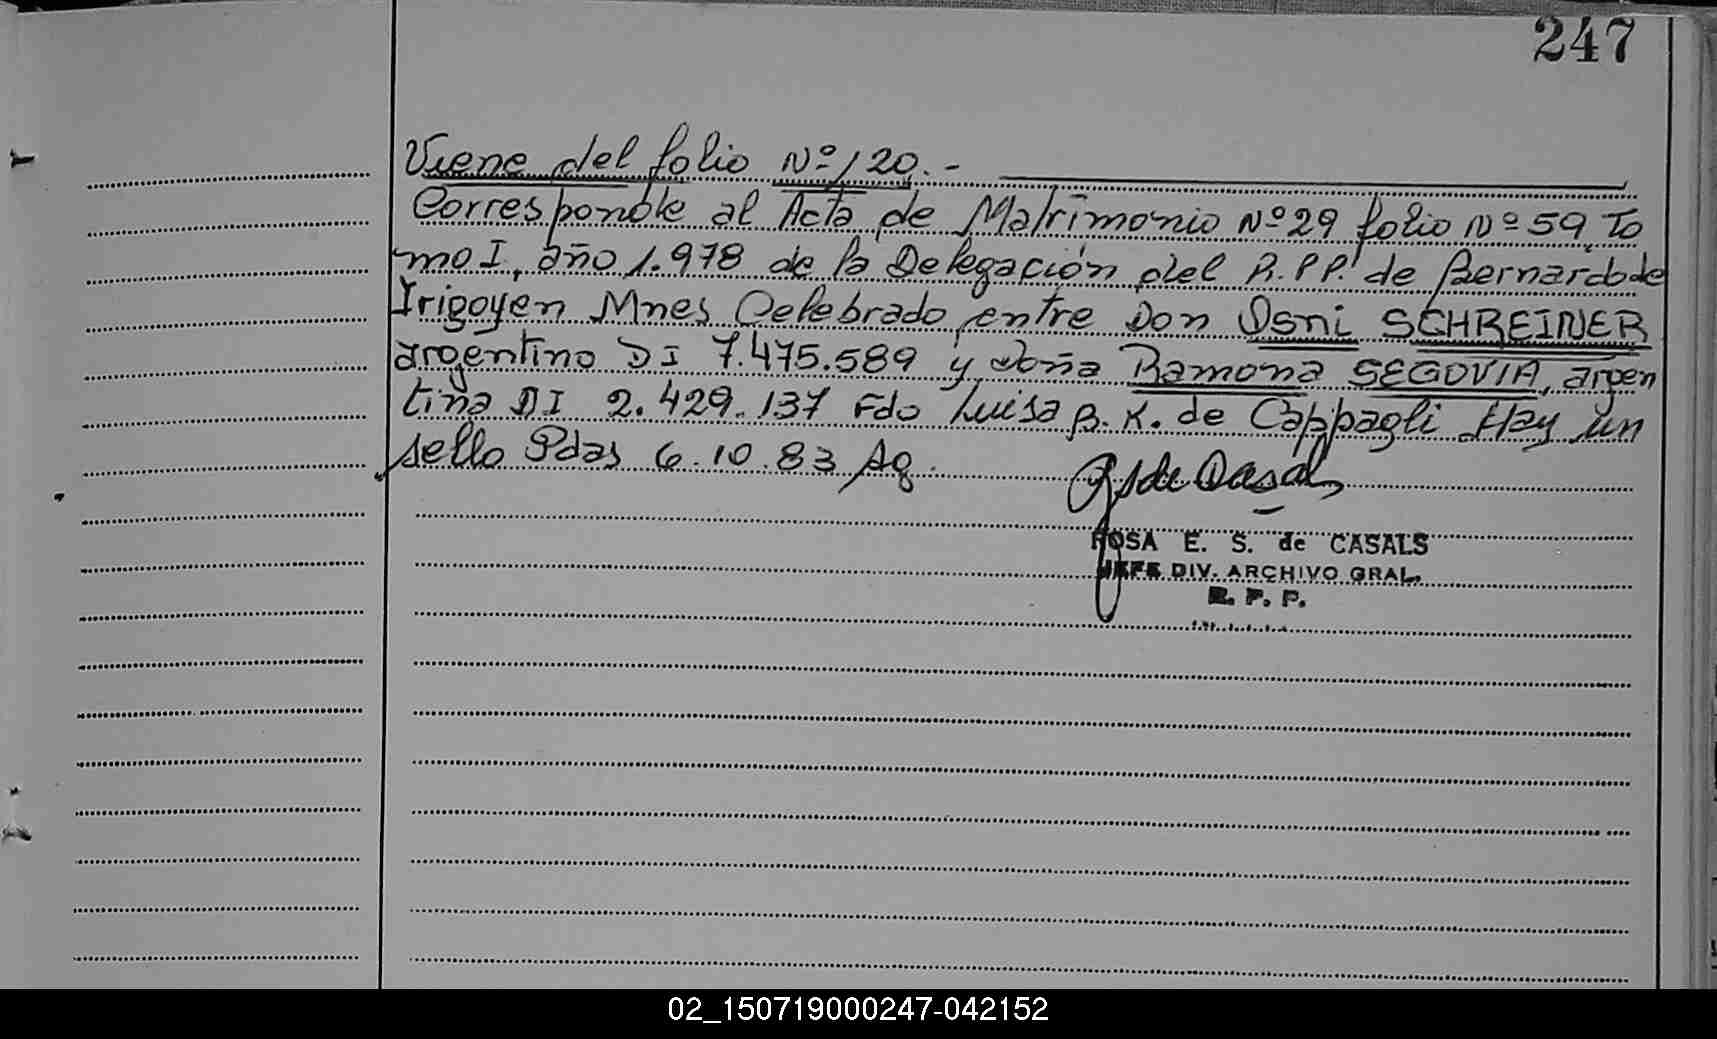 247
Viene del folio Nº 120.-
Corresponde al Acta de Matrimonio Nº 29 folio Nº 59, To
mo I, año 1.978 de la Delegación del R.P.P. de Bernardo de
Irigoyen Mnes Celebrado entre Don Osni SCHREINER
argentino DI 7.475.589 y doña Ramona SEGOVIA, argen
tina DI 2.429.137 Fdo Luisa B. K. de Cappagli Hay un
sello Pdas 6.10.83 Ag.
ROSA E. S. de CASALS
JEFE DIV. ARCHIVO GRAL.
R. P. P.
02_150719000247-042152